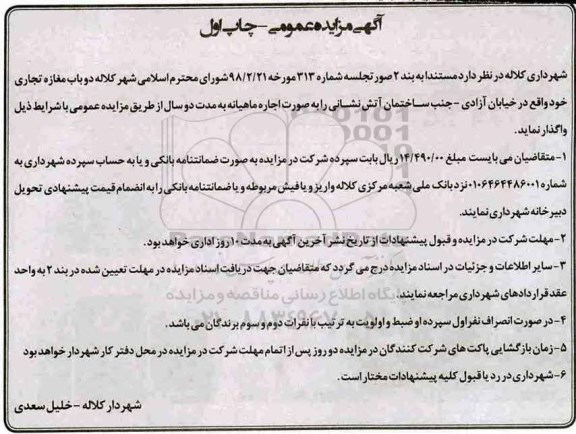 آگهی مزایده عمومی - چاپ اول
شهرداری کلاله در نظر دارد مستندا به بند ۲ صورتجلسه شماره ۳۱۳ مورخه ۹۸/۲/۲۱ شورای محترم اسلامی شهر کلاله دو باب مغازه تجاری
خود واقع در خیابان آزادی - جنب ساختمان آتش نشانی را به صورت اجاره ماهیانه به مدت دو سال از طریق مزایده عمومی با شرایط ذیل
واگذار نماید.
۱- متقاضیان می بایست مبلغ ۱۴/۴۹۰/۰۰ ریال بابت سپرده شرکت در مزایده به صورت ضمانتنامه بانکی و یا به حساب سپرده شهرداری به
شماره ۰۱۰۶۴۶۴۴۸۶۰۰۱ نزد بانک ملی شعبه مرکزی کلاله واریز و یا فیش مربوطه و یا ضمانتنامه بانکی را به انضمام قیمت پیشنهادی تحویل
دبیرخانه شهرداری نمایند.
۲- مهلت شرکت در مزایده و قبول پیشنهادات از تاریخ نشر آخرین آگهی به مدت ۱۰ روز اداری خواهد بود.
۳- سایر اطلاعات و جزئیات در اسناد مزایده درج می گردد که متقاضیان جهت دریافت اسناد مزایده در مهلت تعیین شده در بند ۲ به واحد
عقد قراردادهای شهرداری مراجعه نمایند.
۴- در صورت انصراف نفر اول سپرده او ضبط و اولویت به ترتیب با نفرات دوم و سوم برندگان می باشد.
۵- زمان بازگشایی پاکت های شرکت کنندگان در مزایده دو روز پس از اتمام مهلت شرکت در مزایده در محل دفتر کار شهردار خواهد بود
۶- شهرداری در رد یا قبول کلیه پیشنهادات مختار است.
شهردار کلاله - خلیل سعدی